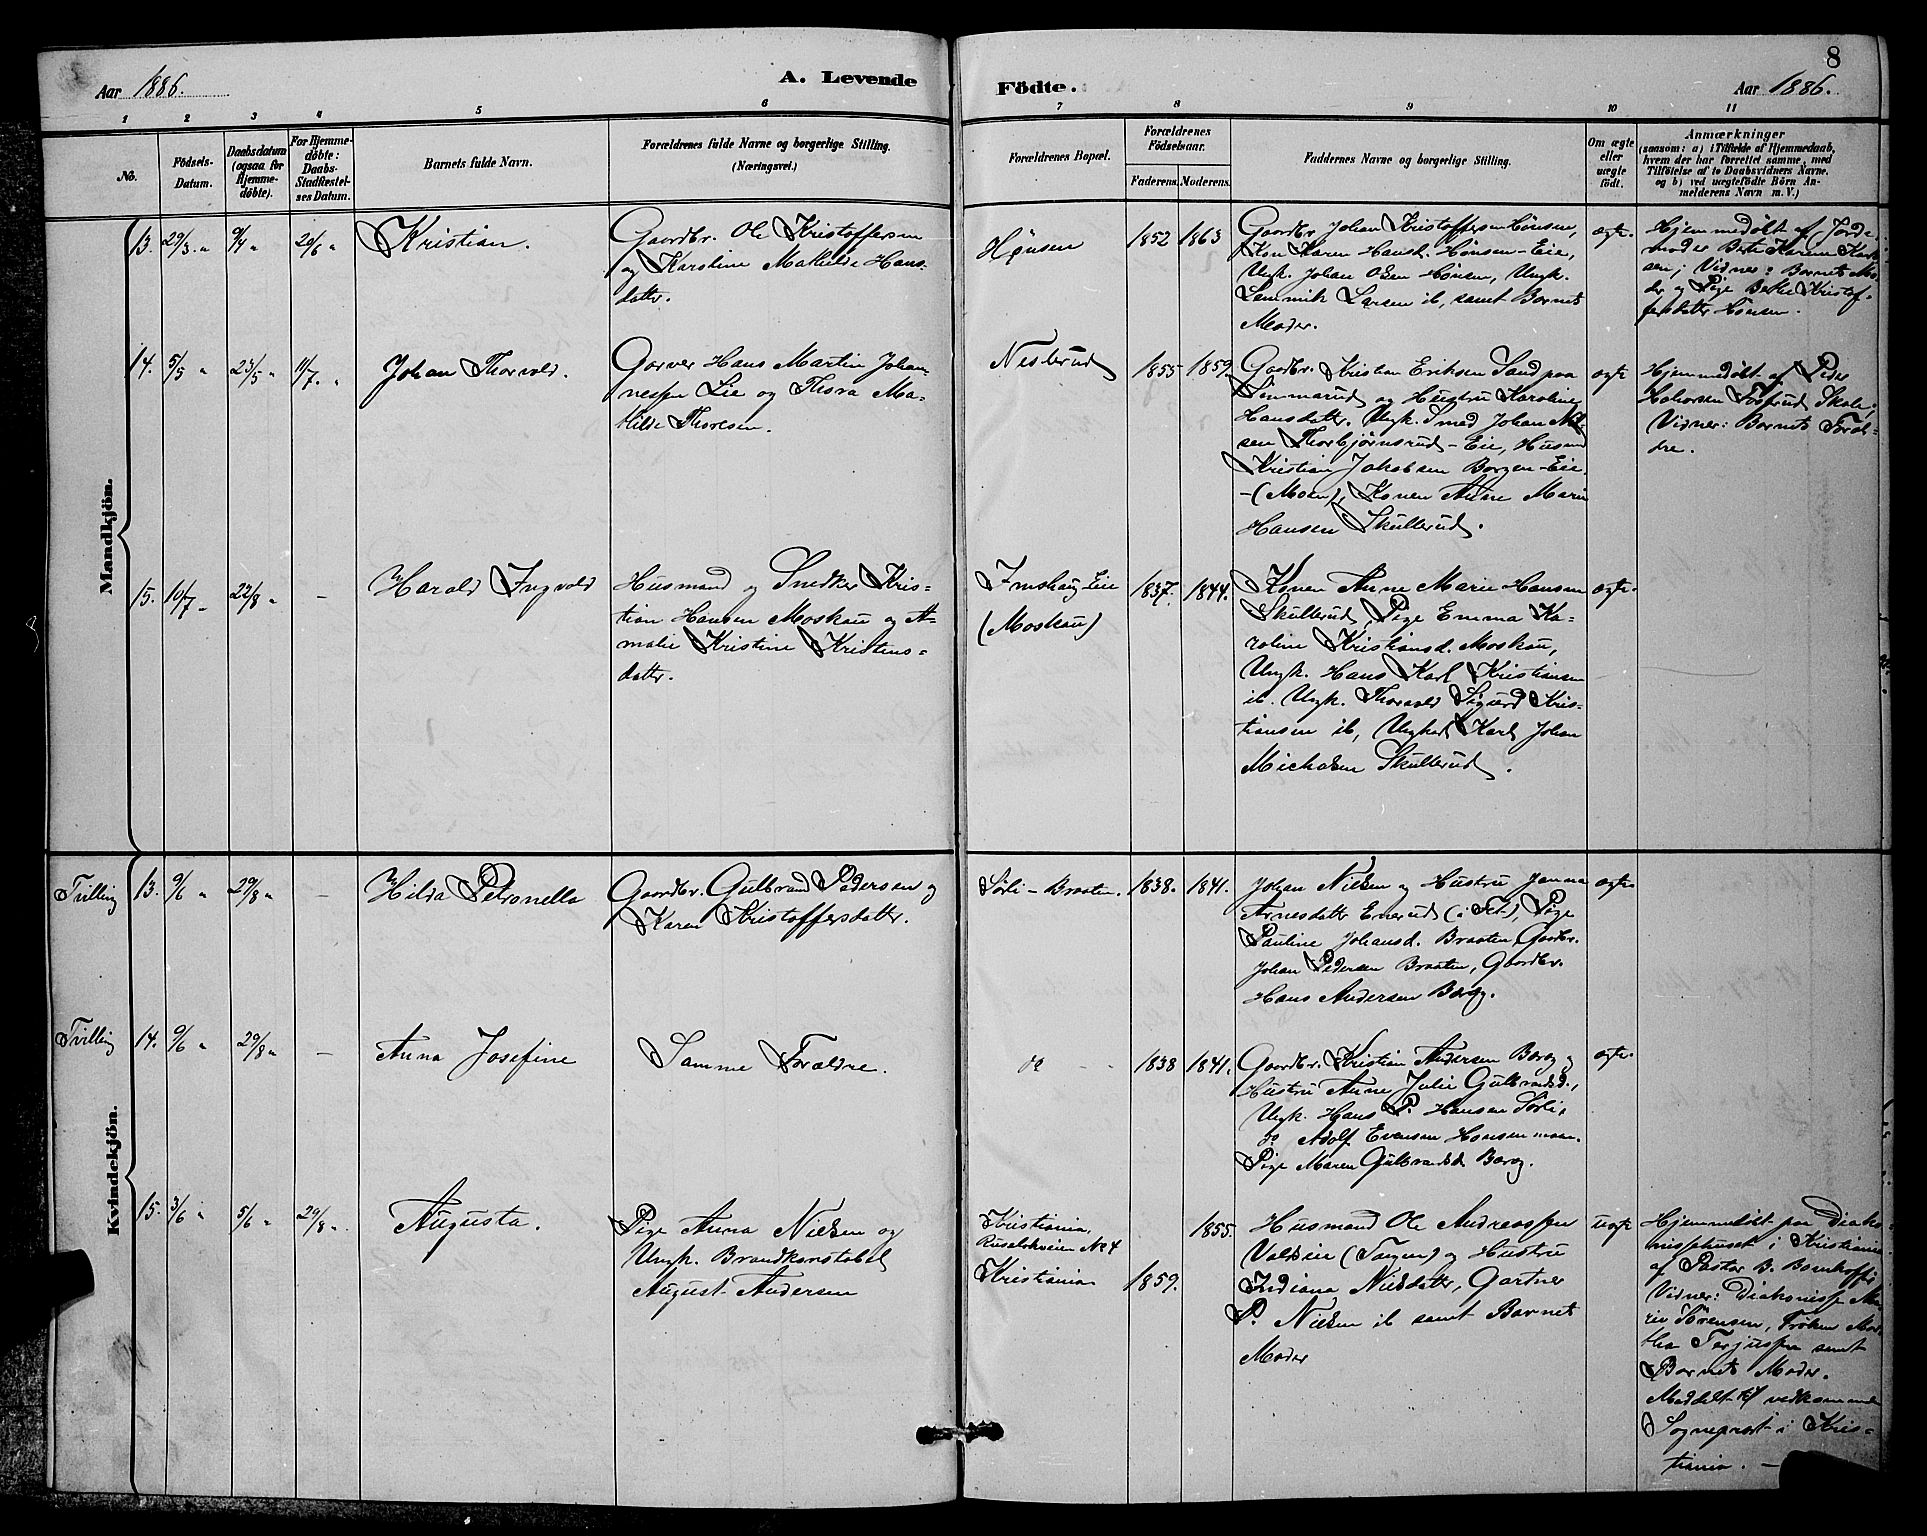 8
Aar 1886.
A. Levende
Födte.
Aar 1886.
1 2 3 4 5 6 7 8 9 10 11
No.
Födsels-
Datum.
Daabsdatum
(ogsaa for
Hjemme-
döbte).
For Hjemme-
döbte:
Daabs-
Stadfæstel-
ses Datum.
Barnets fulde Navn.
Forældrenes fulde Navne og borgerlige Stilling.
(Næringsvei.)
Forældrenes Bopæl.
Forældrenes
Födselsaar.
Faderens. Moderens.
Faddernes Navne og borgerlige Stilling.
Om ægte
eller
uægte
födt.
Anmærkninger
(saasom: a) i Tilfælde af Hjemmedaab,
hvem der har forrettet samme, med
Tilföielse af to Daabsvidners Navne.
og b) ved uægtefödte Börn An-
melderens Navn m. V.)
Mandkjön.
13. 29/3 " 9/4 " 20/6 "
Kristian.
Gaardbr. Ole Kristoffersen
og Karoline Mathilde Hans-
datter.
Hønsen
1852 1863
Gaardbr Johan Kristoffersen Hønsen,
Kone Karen Hansd. Hønsen-Eie,
Ungk. Johan Olsen Hønsen, Ungk.
Lemmik Larsen ib, samt Barnets
Moder.
ægte.
Hjemmedøbt af Jorde-
moder Berte Karine Karl-
sen; Vidner: Barnets Mo-
der og Pige Berte Kristof-
fersdatter Hønsen.
14. 5/5 " 23/5 " 11/7 "
Johan Thorvald.
Garver Hans Martin Johan-
nessen Lie og Thora Ma-
thilde Thoresen.
Neslerud
1855 1859.
Gaardbr. Kristian Eriksen Sand paa
Simmarud og Hustru Karoline
Hansdatter, Ungk. Smed Johan Niel-
sen Thorbjørnsrud-Eie, Husmd
Kristian Jakobsen Borgen-Eie
-(Moen), Konen Anne Marie
Hansen Skullerud.
ægte
Hjemmedøbt af Peder
Halvorsen Fosserud Skole;
Vidner: Barnets Foræl-
dre.
15. 10/7 " 22/8 " -
Harald Ingvald
Husmand og Snedker Kris-
tian Hansen Moskau og A-
malie Kristine Kristens-
datter.
Imshaug-Eie
(Moskau)
1837. 1844.
Konen Anne Marie Hansen
Skullerud, Pige Emma Ka-
roline Kristiansd. Moskau,
Ungk. Hans Karl Kristiansen
ib. Ungk. Thorvald Sigurd Kris-
tiansen ib, Ungkarl Karl Johan
Michalsen Skullerud.
ægte.
Kvindekjön.
Tvilling 13. 9/6 " 29/8 " -
Hilda Petronella
Gaardbr. Gulbrand Pedersen og
Karen Kristoffersdatter.
Sørli-Braaten.
1838. 1841.
Johan Nielsen og Hustru Janna
Arnesdatter Enerud (i Fet), Pige
Pauline Johansd. Braaten, Gaardbr.
Johan Pedersen Braaten, Gaardbr.
Hans Andersen Barøg.
ægte
Tvilling 14. 9/6 " 29/8 " -
Anna Josefine
Samme Forældre.
do
1838 1841.
Gaardbr. Kristian Andersen Barøg og
Hustru Anne Julie Gulbrandsd.,
Ungk. Hans P. Hansen Sørli,
do Adolf Evensen Hønsen
Pige Maren Gulbrandsd Barøg.
ægte.
15. 3/6 " 5/6 " 29/8 "
Augusta.
Pige Anna Nielsen og
Ungk. Brandkonstabel
August Andersen
Kristiania,
Ruseløkveien No 4
Kristiania
1859. 1855.
Husmand Ole Andreassen
Valseie (Tangen) og Hustru
Indiana Nielsdatter, Gartner
P. Nielsen ib samt Barnets
Moder
uægte
Hjemmedøbt paa Diako-
nissehuset i Kristiania
af Pastor B. Barnhoff;
Vidner: Diakonisse Ma-
rie Sørensen, Frøken Mar-
tha Terjussen samt
Barnets Moder.
Meddelt til vedkommende
Sogneprest i Kris-
tiania. -